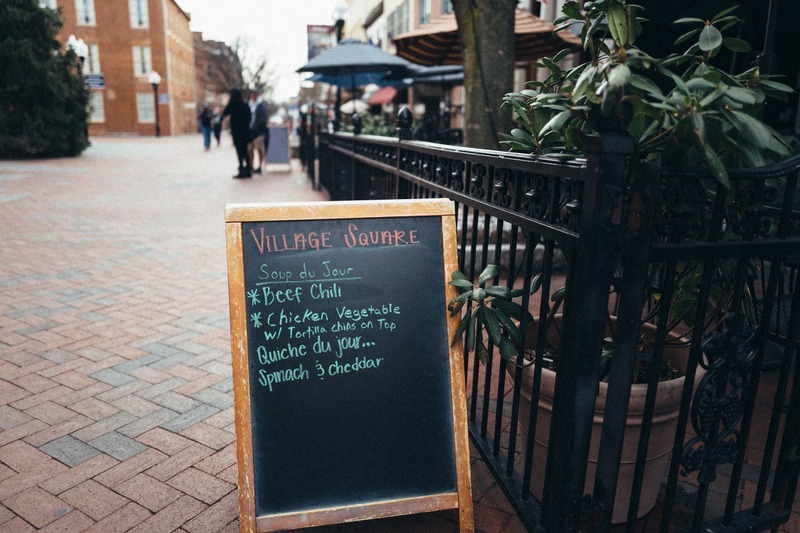 VILLAGE SQUARE
Soup du Jour
*Beef Chili
*Chicken Vegetable
w/ Tortilla chips on Top
Quiche du jour...
Spinach & cheddar